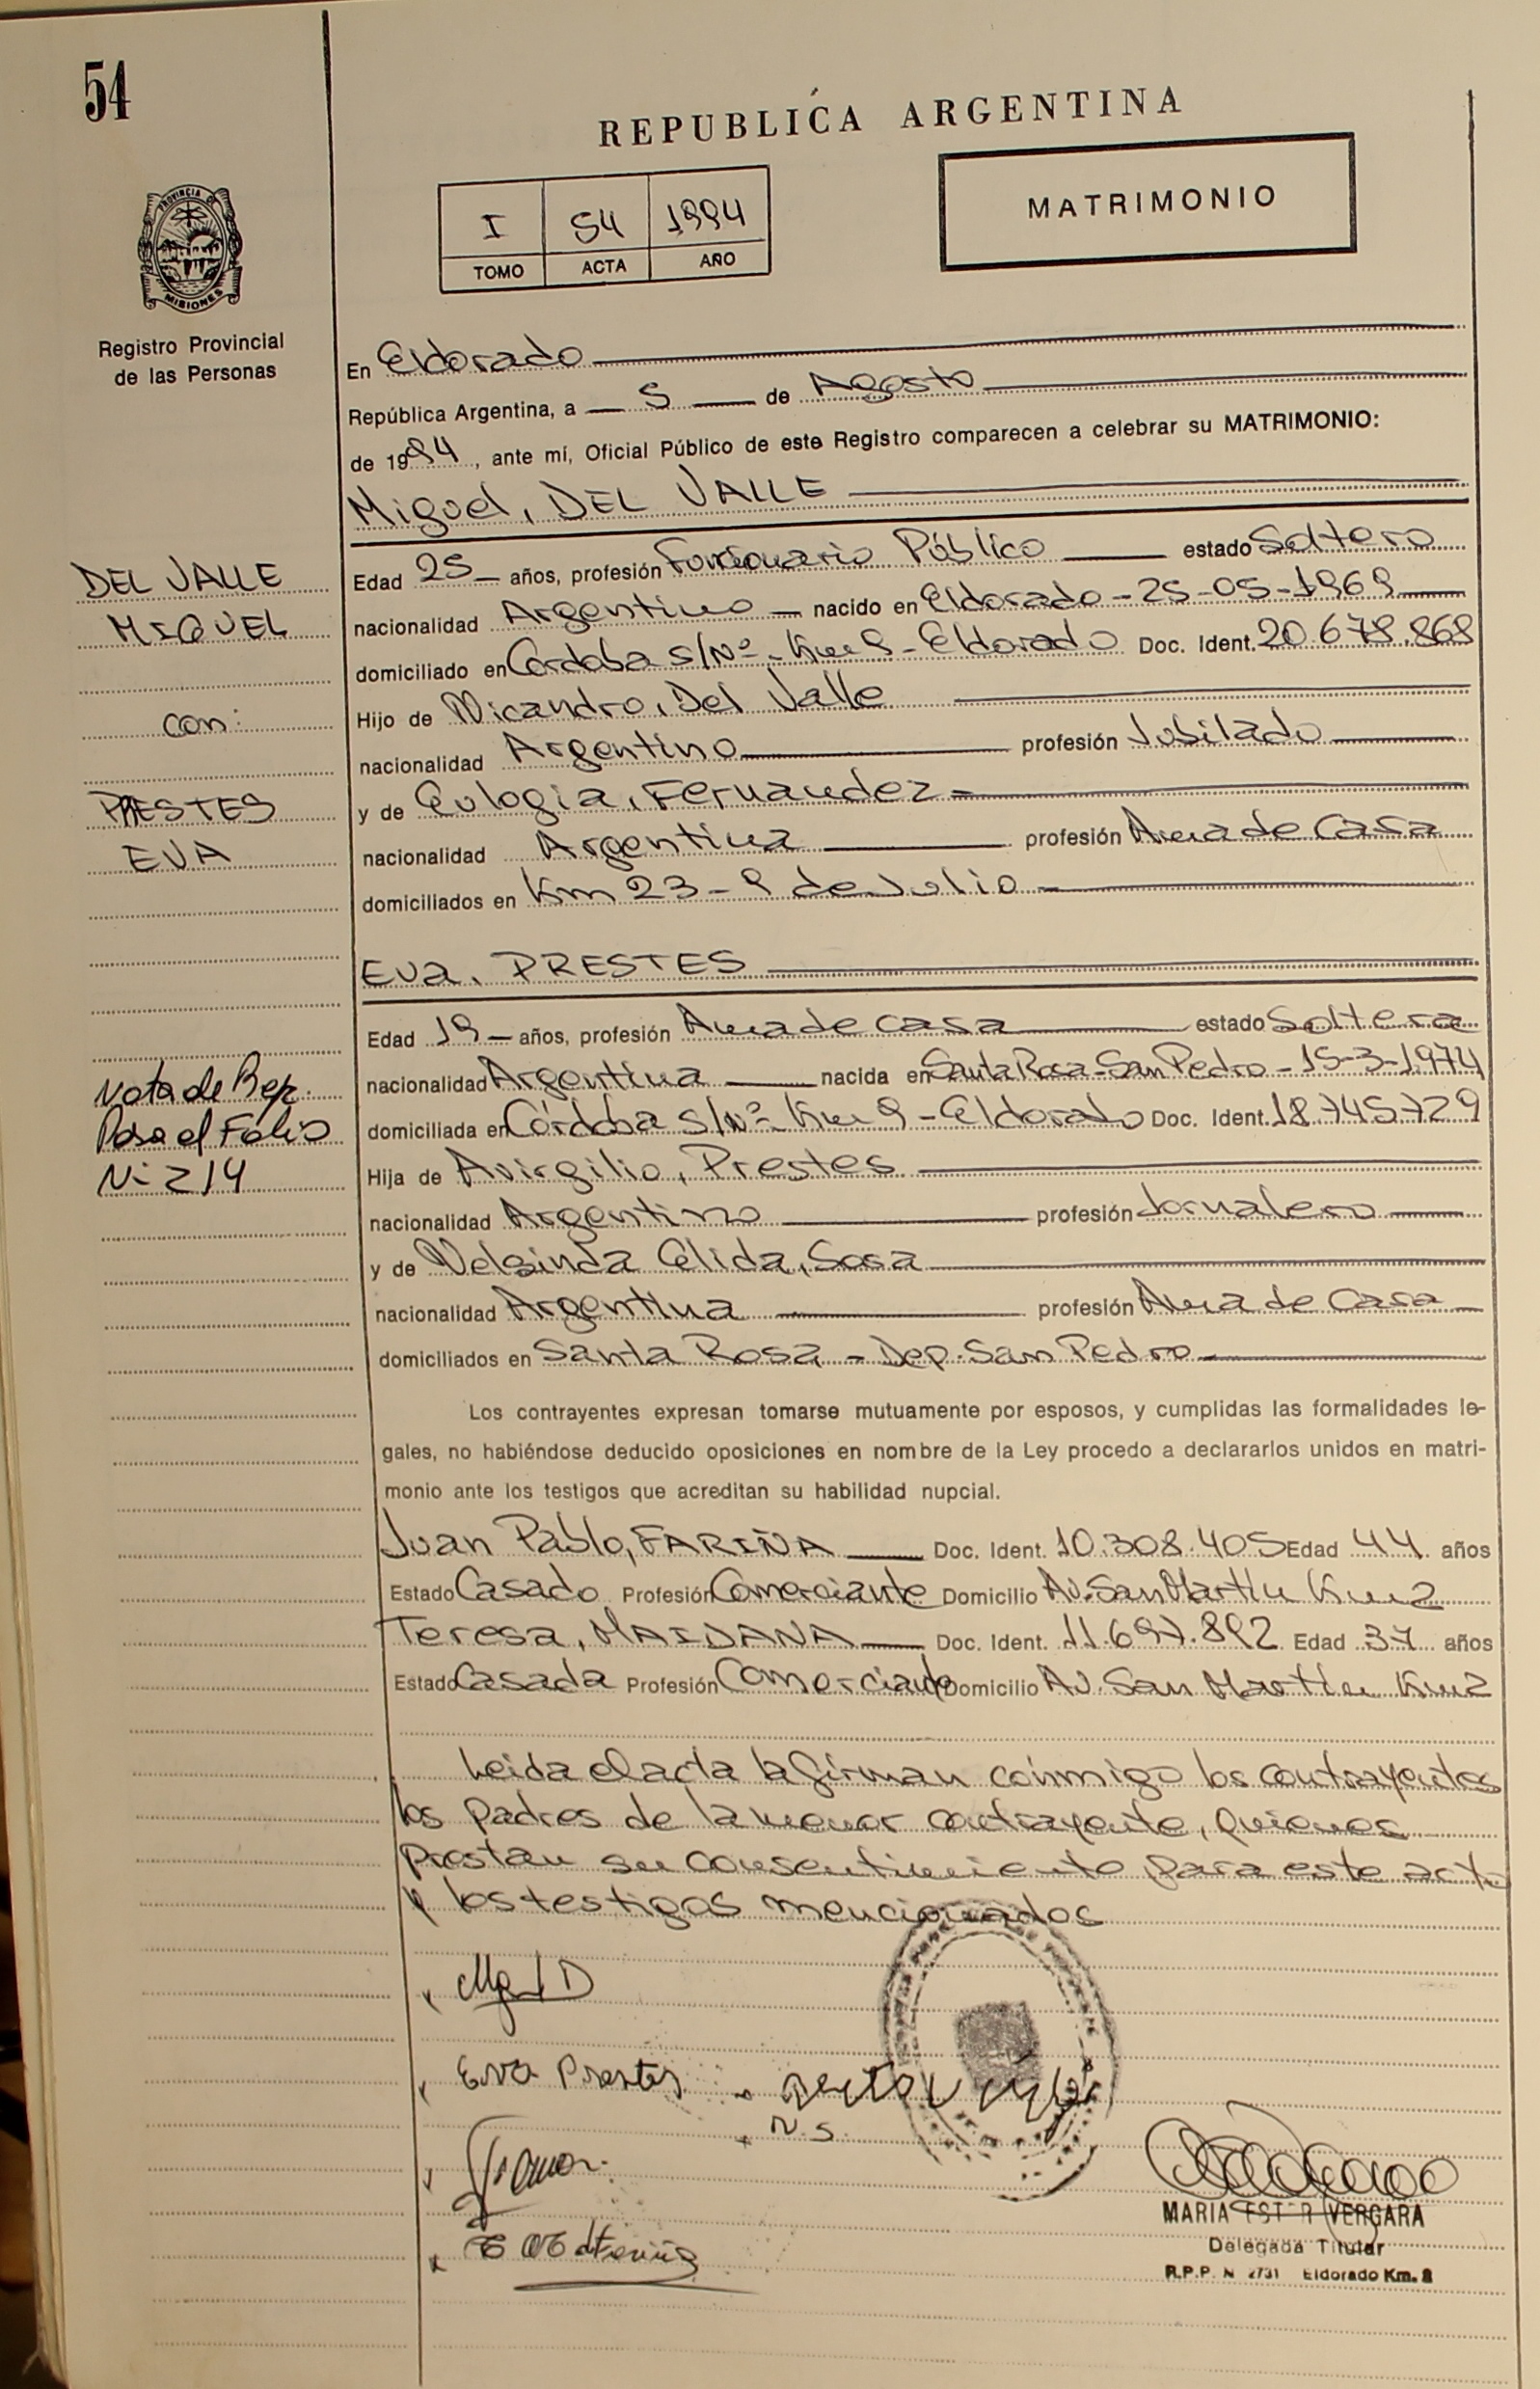 54
REPUBLICA ARGENTINA
MATRIMONIO
I 54 1994
TOMO ACTA AÑO
PROVINCIA DE
MISIONES
Registro Provincial
de las Personas
En Eldorado
República Argentina, a 5 de Agosto
de 1994, ante mí, Oficial Público de este Registro comparecen a celebrar su MATRIMONIO:
Miguel, DEL VALLE
DEL VALLE
MIGUEL
con:
PRESTES
EVA
Edad 25 años, profesión Funcionario Público estado Soltero
nacionalidad Argentino nacido en Eldorado - 25-05-1969
domiciliado en Córdoba s/Nº - Km 9 - Eldorado Doc. Ident. 20.678.868
Hijo de Nicandro, Del Valle
nacionalidad Argentino profesión Jubilado
y de Eulogia, Fernandez
nacionalidad Argentina profesión Ama de Casa
domiciliados en Km 23 - 9 de Julio
Eva, PRESTES
Edad 19 años, profesión Ama de casa estado Soltera
nacionalidad Argentina nacida en Santa Rosa - San Pedro - 15-3-1974
domiciliada en Córdoba s/Nº Km 9 - Eldorado Doc. Ident. 18.745.729
Nota de Rep.
Pasa al Folio
Nº 214
Hija de Avirgilio, Prestes
nacionalidad Argentino profesión Jornalero
y de Nelsinda Elida, Sosa
nacionalidad Argentina profesión Ama de Casa
domiciliados en Santa Rosa - Dep. San Pedro
Los contrayentes expresan tomarse mutuamente por esposos, y cumplidas las formalidades le-
gales, no habiéndose deducido oposiciones en nombre de la Ley procedo a declararlos unidos en matri-
monio ante los testigos que acreditan su habilidad nupcial.
Juan Pablo, FARIÑA Doc. Ident. 10.308.405 Edad 44 años
Estado Casado Profesión Comerciante Domicilio Av. San Martín Km 2
Teresa, MAIDANA Doc. Ident. 11.697.892 Edad 37 años
Estado Casada Profesión Comerciante Domicilio Av. San Martín Km 2
Leida el acta la firman conmigo los contrayentes
los padres de la menor contrayente, quienes
prestan su consentimiento para este acto
y los testigos mencionados
Eva Prestes
N.S.
MARIA ESTER VERGARA
Delegada Titular
R.P.P. N 2731 Eldorado Km. 2